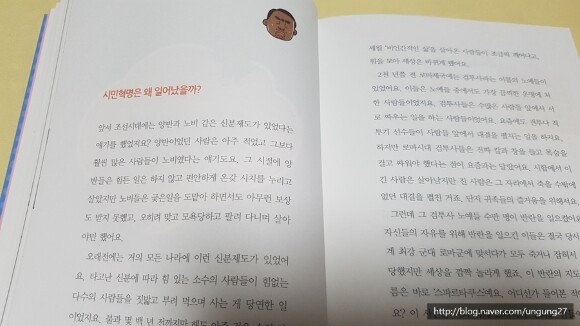 시민혁명은 왜 일어났을까?
앞서 조선시대에는 양반과 노비 같은 신분제도가 있었다는
얘기를 했었지요? 양반이었던 사람은 아주 적었고 그보다
훨씬 많은 사람들이 노비였다는 얘기도요. 그 시절에 양
반들은 힘든 일은 하지 않고 편안하게 온갖 사치를 누리고
살았지만 노비들은 궂은일을 도맡아 하면서도 아무런 보상
도 받지 못했고, 오히려 맞고 모욕당하고 팔려 다니며 살아
야만 했어요.
오래전에는 거의 모든 나라에 이런 신분제도가 있었어
요. 타고난 신분에 따라 힘 있는 소수의 사람들이 힘없는
다수의 사람들을 짓밟고 부려 먹으며 사는 게 당연한 일
이었지요. 불과 몇 백 년 전까지만 해도
세월 '비인간적인 삶'을 살아온 사람들이 조금씩 깨어나고,
힘을 모아 세상은 바뀌게 됐어요.
2천 년쯤 전 로마제국에는 검투사라는 이름의 노예들이
있었어요. 이들은 노예들 중에서도 가장 끔찍한 운명에 처
한 사람들이었지요. 검투사들은 수많은 사람들 앞에서 서
로 싸우는 일을 하는 사람들이었어요. 요즘에도 격투기
투기 선수들이 사람들 앞에서 대결을 펼치는 일을 하지요.
하지만 로마시대 검투사들은 진짜 칼과 창을 들고 목숨을
걸고 싸워야 했다는 점이 요즘과는 달랐어요. 시합에서 이
긴 사람은 살아남지만 진 사람은 그 자리에서 죽을 수밖에
없던 대결을 펼친 거죠. 단지 귀족들의 즐거움을 위해서요.
그런데 그 검투사 노예들 수만 명이 반란을 일으켰어요.
자신들의 자유를 위해 반란을 일으킨 이들은 결국 당시
계 최강 군대 로마군에 맞서다가 모두 죽거나 잡혀서
당했지만 세상을 깜짝 놀라게 했죠. 이 반란의 지도
름은 바로 '스파르타쿠스'예요. 어디선가 들어본 적
요? 이 사
http://blog.naver.com/ungung27